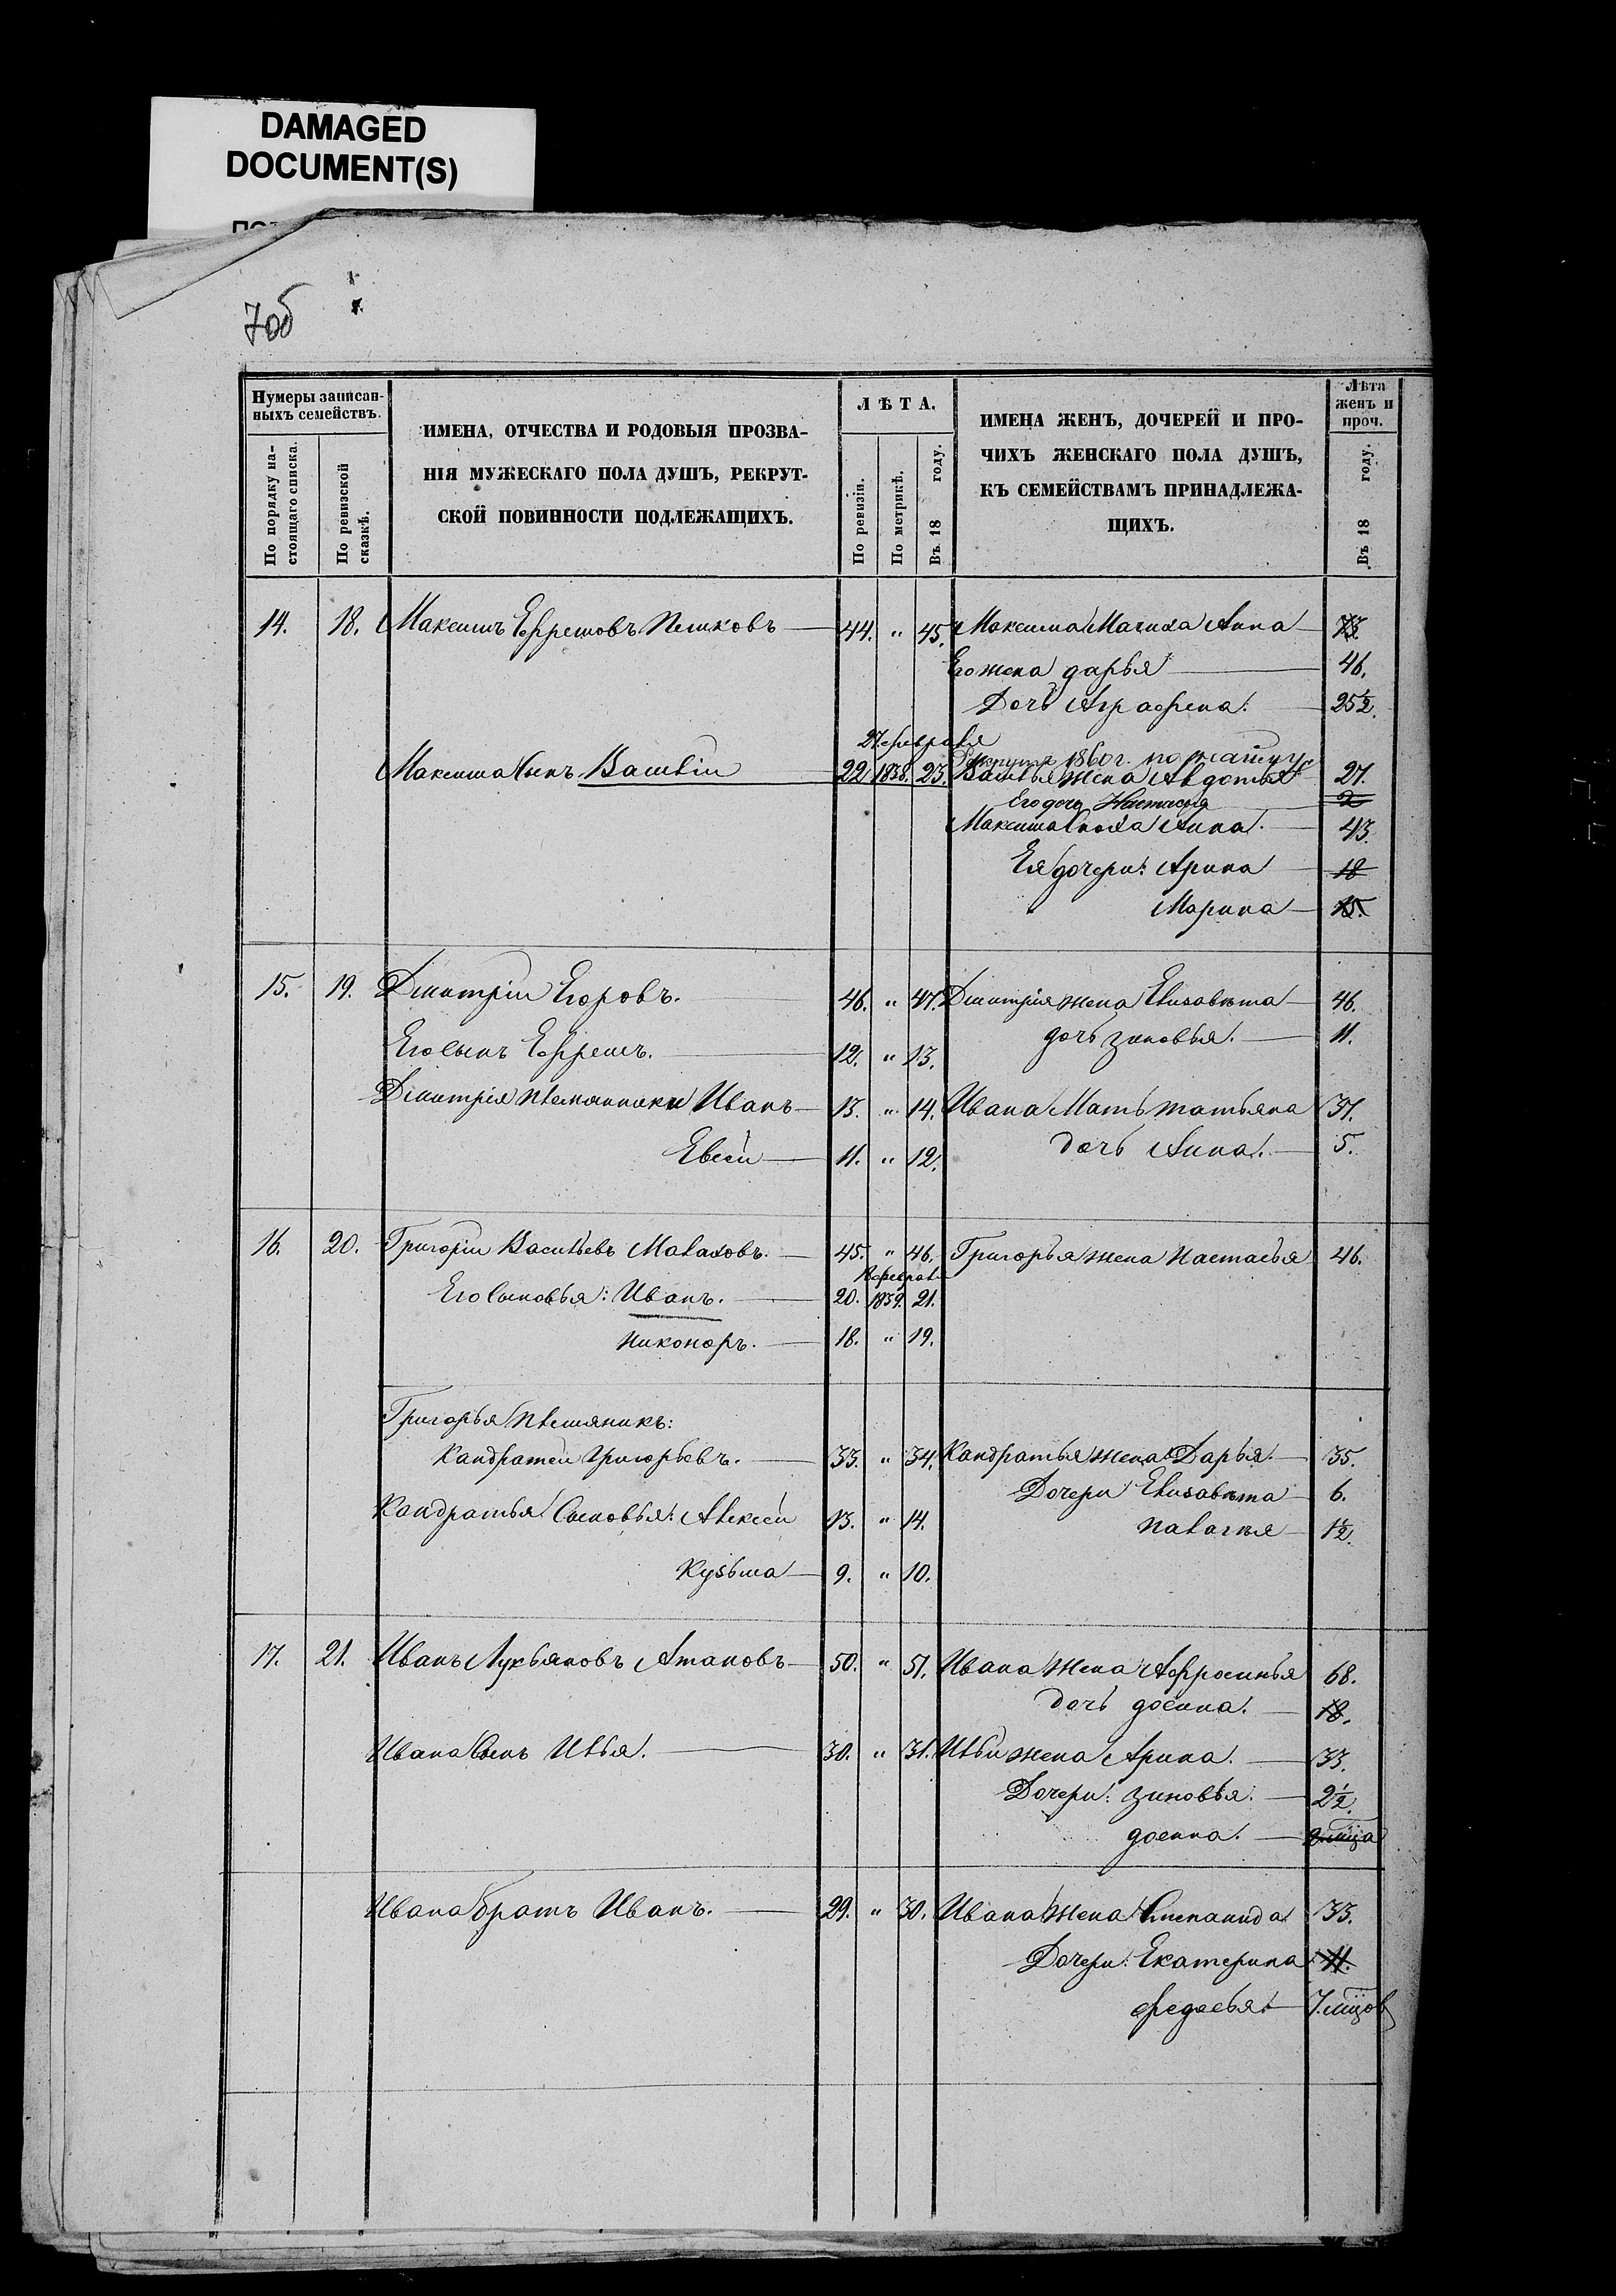 DAMAGED
DOCUMENT(S)
7об
Нумеры записан-
ныхъ семействъ.
По порядку на-
стоящаго списка.
По ревизской
сказкѣ.
ИМЕНА, ОТЧЕСТВА И РОДОВЫЯ ПРОЗВА-
НІЯ МУЖЕСКАГО ПОЛА ДУШЪ, РЕКРУТ-
СКОЙ ПОВИННОСТИ ПОДЛЕЖАЩИХЪ.
ЛѢТА.
По ревизіи.
По метрикѣ.
Въ 18 году.
ИМЕНА ЖЕНЪ, ДОЧЕРЕЙ И ПРО-
ЧИХЪ ЖЕНСКАГО ПОЛА ДУШЪ,
КЪ СЕМЕЙСТВАМЪ ПРИНАДЛЕЖА-
ЩИХЪ.
Лѣта
женъ и
проч.
Въ 18 году.
14. 18. Максимъ Ефремовъ Пешковъ 44. " 45. Максима Мачиха Анна 73.
Его жена дарья 46.
Дочь Аграфена. 25½.
27 февраля
Рекрутъ 1860 г. по
Максима Сынъ Василій 22 1838. 23. Василья жена Авдотья 27.
Его дочь Настасья 2
Максима Сноха Анна. 43.
Ея дочери: Арина 18
Марина 15.
15. 19. Дмитрій Егоровъ. 46. " 47. Дмитрія жена Елизавѣта 46.
дочь зиновья. 11.
Его сынъ Ефремъ. 12. " 13.
Дмитрія племянники Иванъ 13. " 14. Ивана Мать татьяна 37.
Евсей 11. " 12. дочь Анна. 5.
16. 20. Григорій Васильевъ Малаховъ. 45. " 46. Григорья жена настасья 46.
феврал
Его Сыновья: Иванъ. 20. 1839. 21.
никоноръ. 18. " 19.
Григорья племяникъ:
Кандратей григорьевъ. 33. " 34. Кандратья жена Дарья. 35.
Дочери Елизавѣта 6.
Кандратья Сыновья: Алексѣй 13. " 14. палагѣя 1½.
Кузьма 9. " 10.
17. 21. Иванъ Лукьяновъ Атановъ 50. " 51. Ивана жена Афросинья 68.
дочь доенна. 18.
Ивана Сынъ Илья. 30. " 31. Ильи жена Арина. 33.
Дочери: зиновья. 2½.
доенна. 2 мца
Ивана братъ Иванъ. 29. " 30. Ивана жена Степанида 33.
Дочери: Екатерина 11.
федосья. 7 мцов